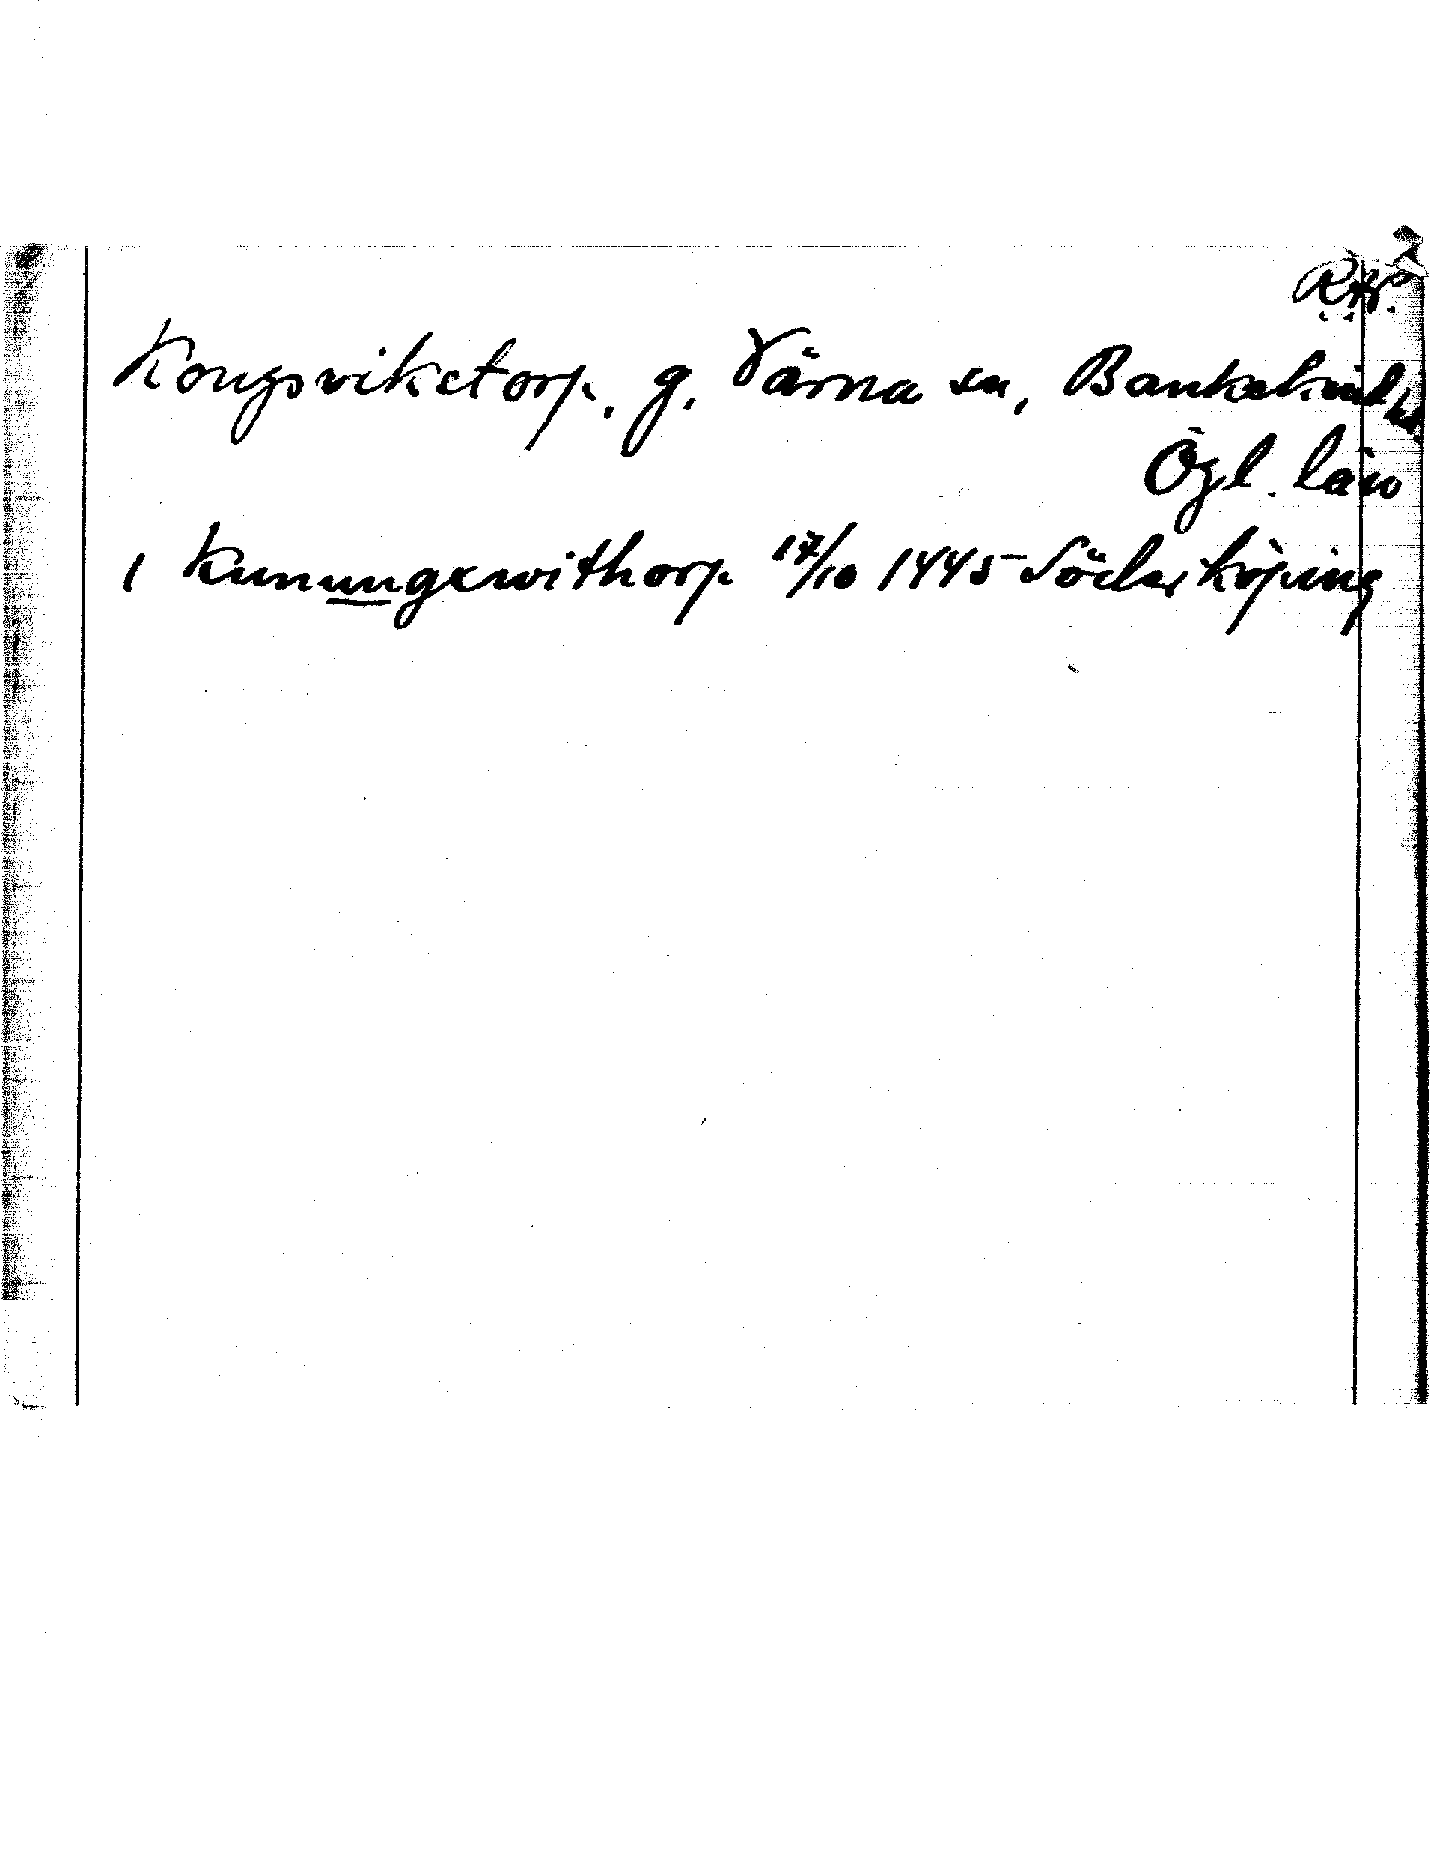 Kongsvikstorp, g. Värna sn, Bankekind hd
Ögl. län
1 kunungxwithorp 17/10 1445 Söderköping